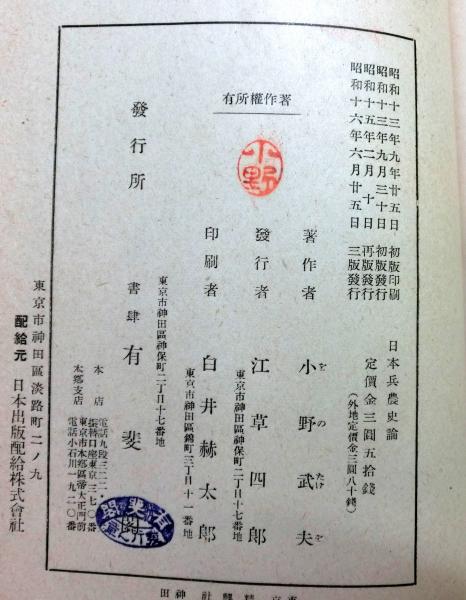 昭和十三年九月廿五日 初版印刷
昭和十三年九月三十日 初版發行
昭和十五年二月十日 再版發行
昭和十六年六月廿五日 三版發行
日本兵農史論
定價金三圓五拾錢
(外地定價金三圓八十錢)
著作權所有
小野
著作者 小野武夫
をのたけを
發行者 江草四郎
東京市神田區神保町二丁目十七番地
印刷者 白井赫太郎
東京市神田區錦町三丁目十一番地
發行所
東京市神田區神保町二丁目十七番地
書肆 有斐閣
本店
振替口座東京三七〇番
本郷支店
東京市本郷區帝大正門前
電話小石川一九二〇番
東京市神田區淡路町二ノ九
配給元 日本出版配給株式會社